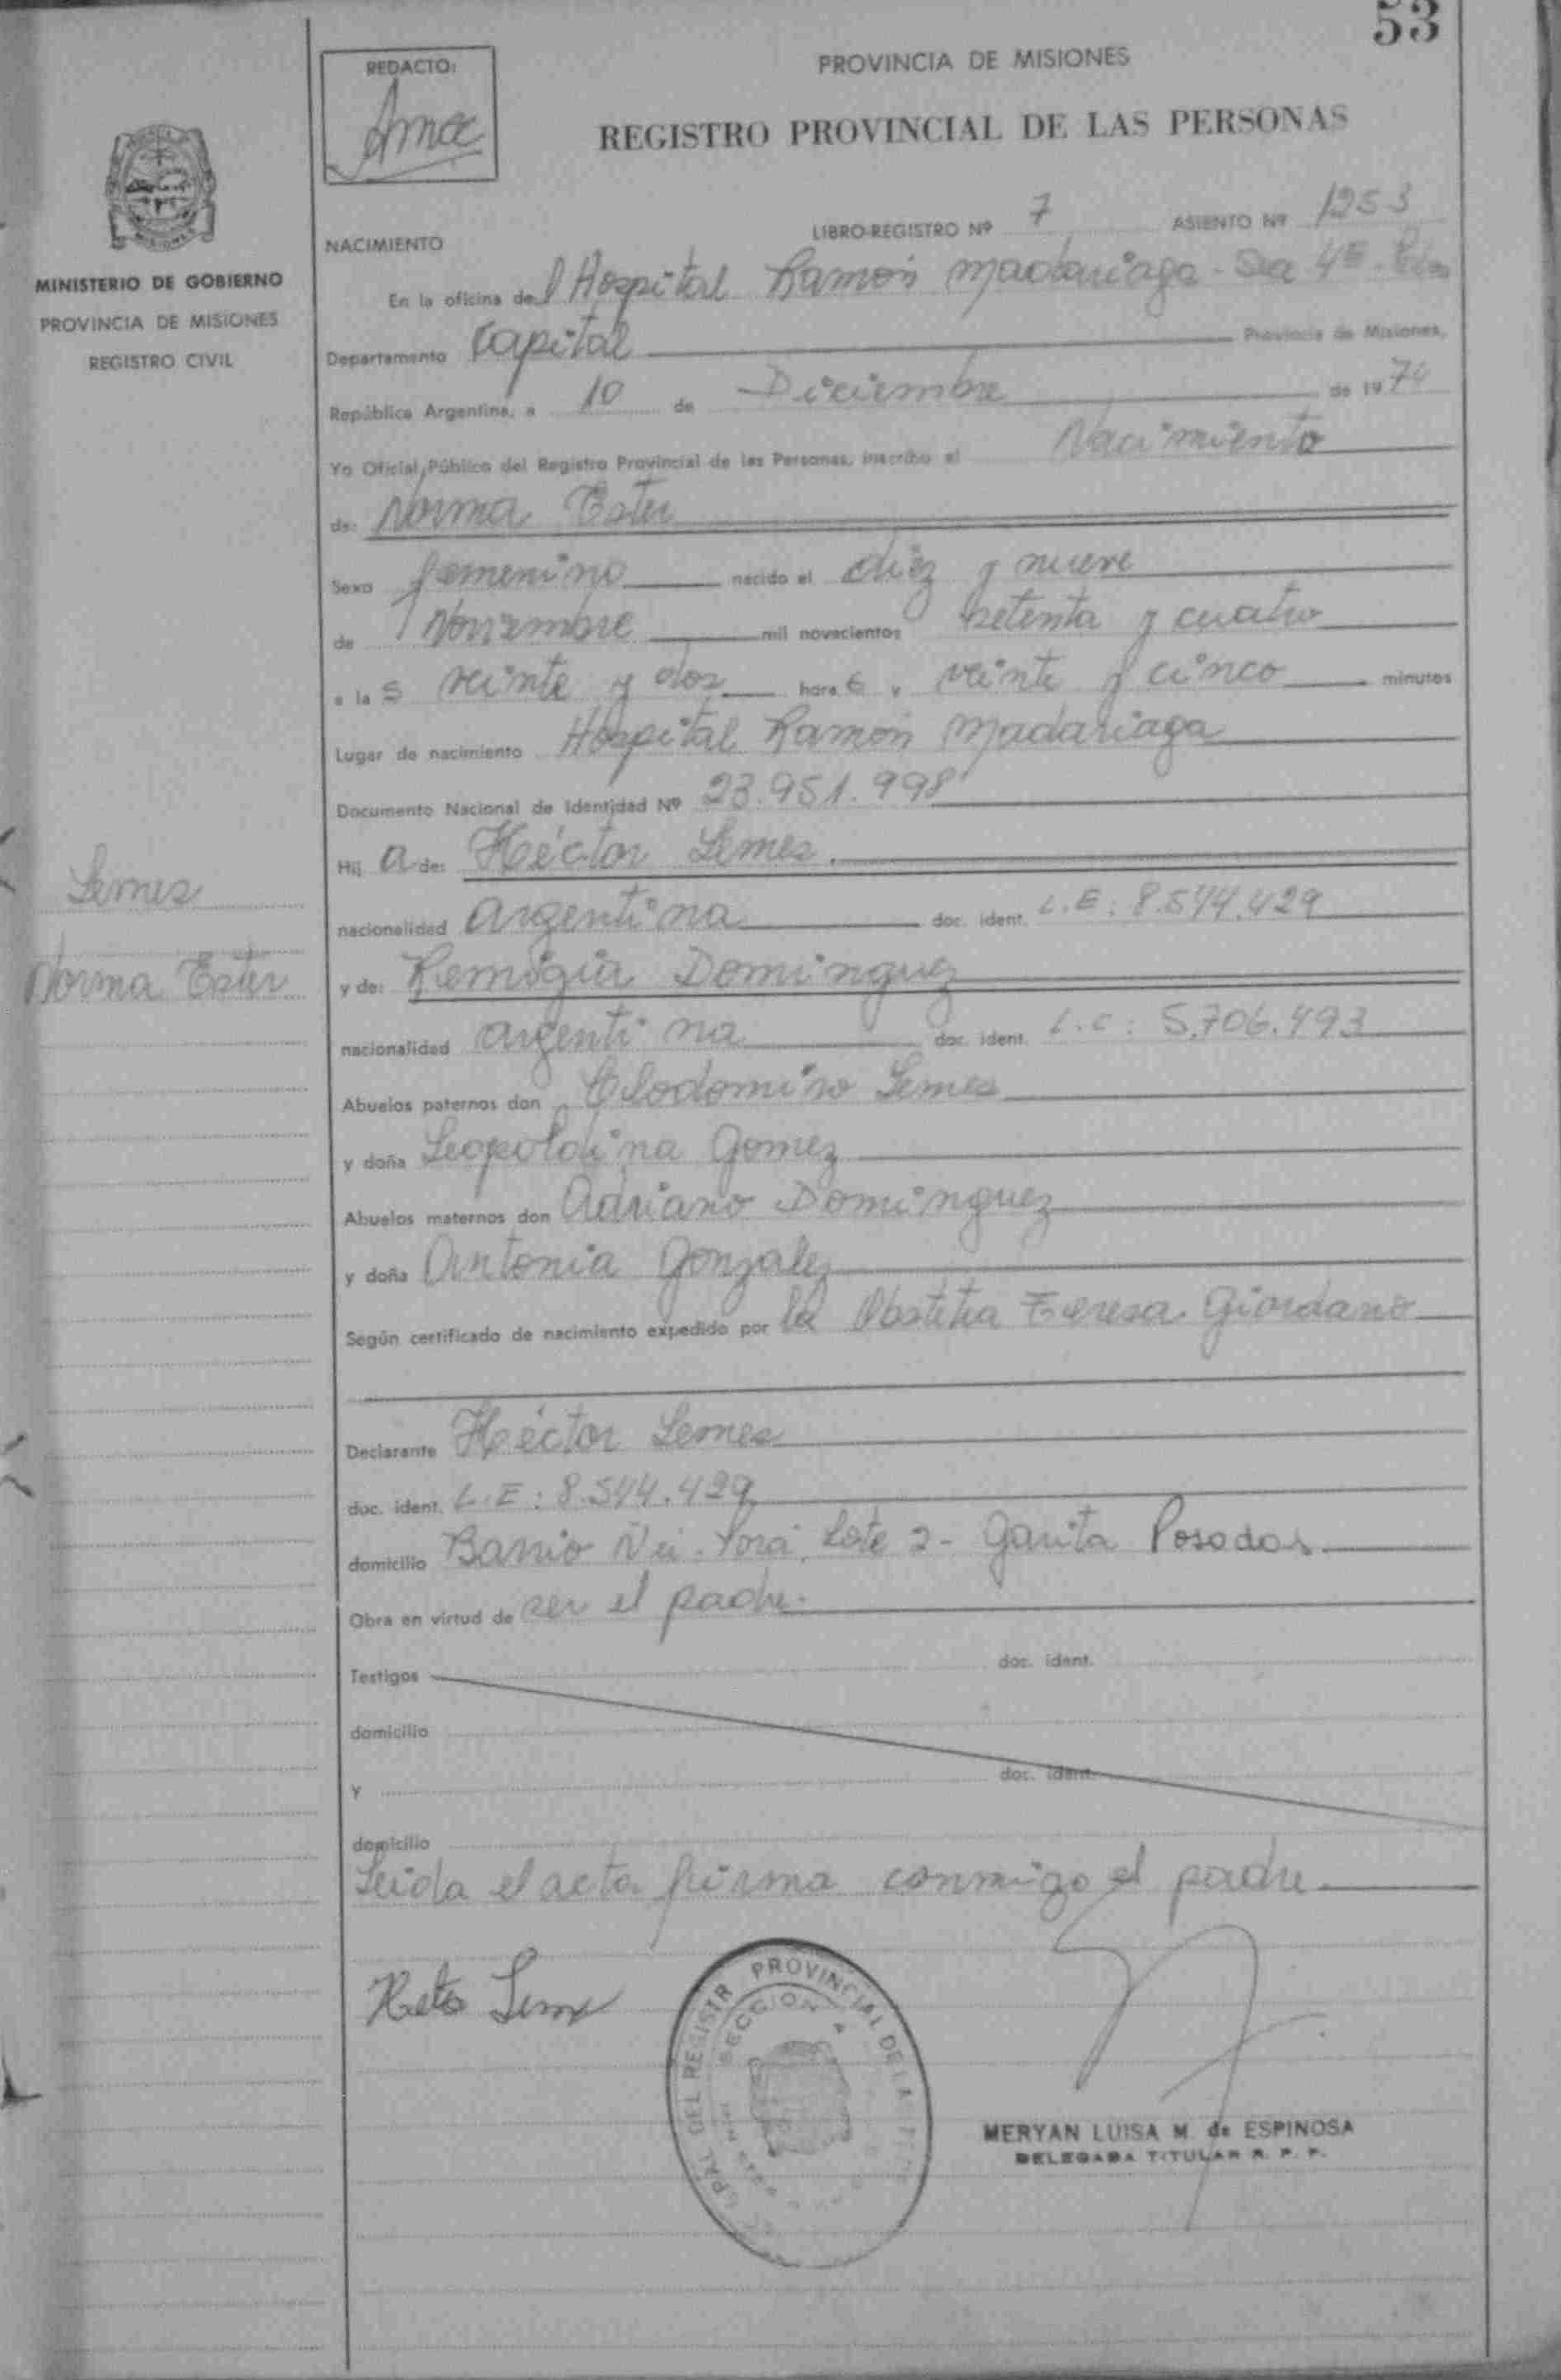 53
REDACTO:
PROVINCIA DE MISIONES
REGISTRO PROVINCIAL DE LAS PERSONAS
LIBRO-REGISTRO Nº 7 ASIENTO Nº 1253
NACIMIENTO
MINISTERIO DE GOBIERNO
PROVINCIA DE MISIONES
REGISTRO CIVIL
En la oficina del Hospital Ramón Madariaga - 4ª
Departamento Capital Provincia de Misiones,
República Argentina, a 10 de Diciembre de 1974
Yo Oficial Público del Registro Provincial de las Personas, inscribo el Nacimiento
de: Norma Ester
Sexo femenino nacido el diez y nueve
de Noviembre mil novecientos setenta y cuatro
a las veinte y dos hora s y veinte y cinco minutos
Lugar de nacimiento Hospital Ramón Madariaga
Documento Nacional de Identidad Nº 23.951.998
Hij a de: Héctor Lemes
Lemes
nacionalidad argentina doc. ident. L.E: 8.544.429
Norma Ester
y de: Remigia Dominguez
nacionalidad argentina doc. ident. L.C: 5.706.493
Abuelos paternos don Clodomiro Lemes
y doña Leopoldina Gomez
Abuelos maternos don Adriano Dominguez
y doña Antonia Gonzalez
Según certificado de nacimiento expedido por la Obstetra Teresa Giordano
Declarante Héctor Lemes
doc. ident. L.E: 8.544.429
domicilio Barrio Lote 2 - Garita Posadas
Obra en virtud de ser el padre.
Testigos doc. ident.
domicilio
Y doc. ident.
domicilio
Leida el acta firma conmigo el padre
PROVINCIAL DE LA
DEL REGISTR
SECCION
MERYAN LUISA M. de ESPINOSA
DELEGADA TITULAR R. P. P.